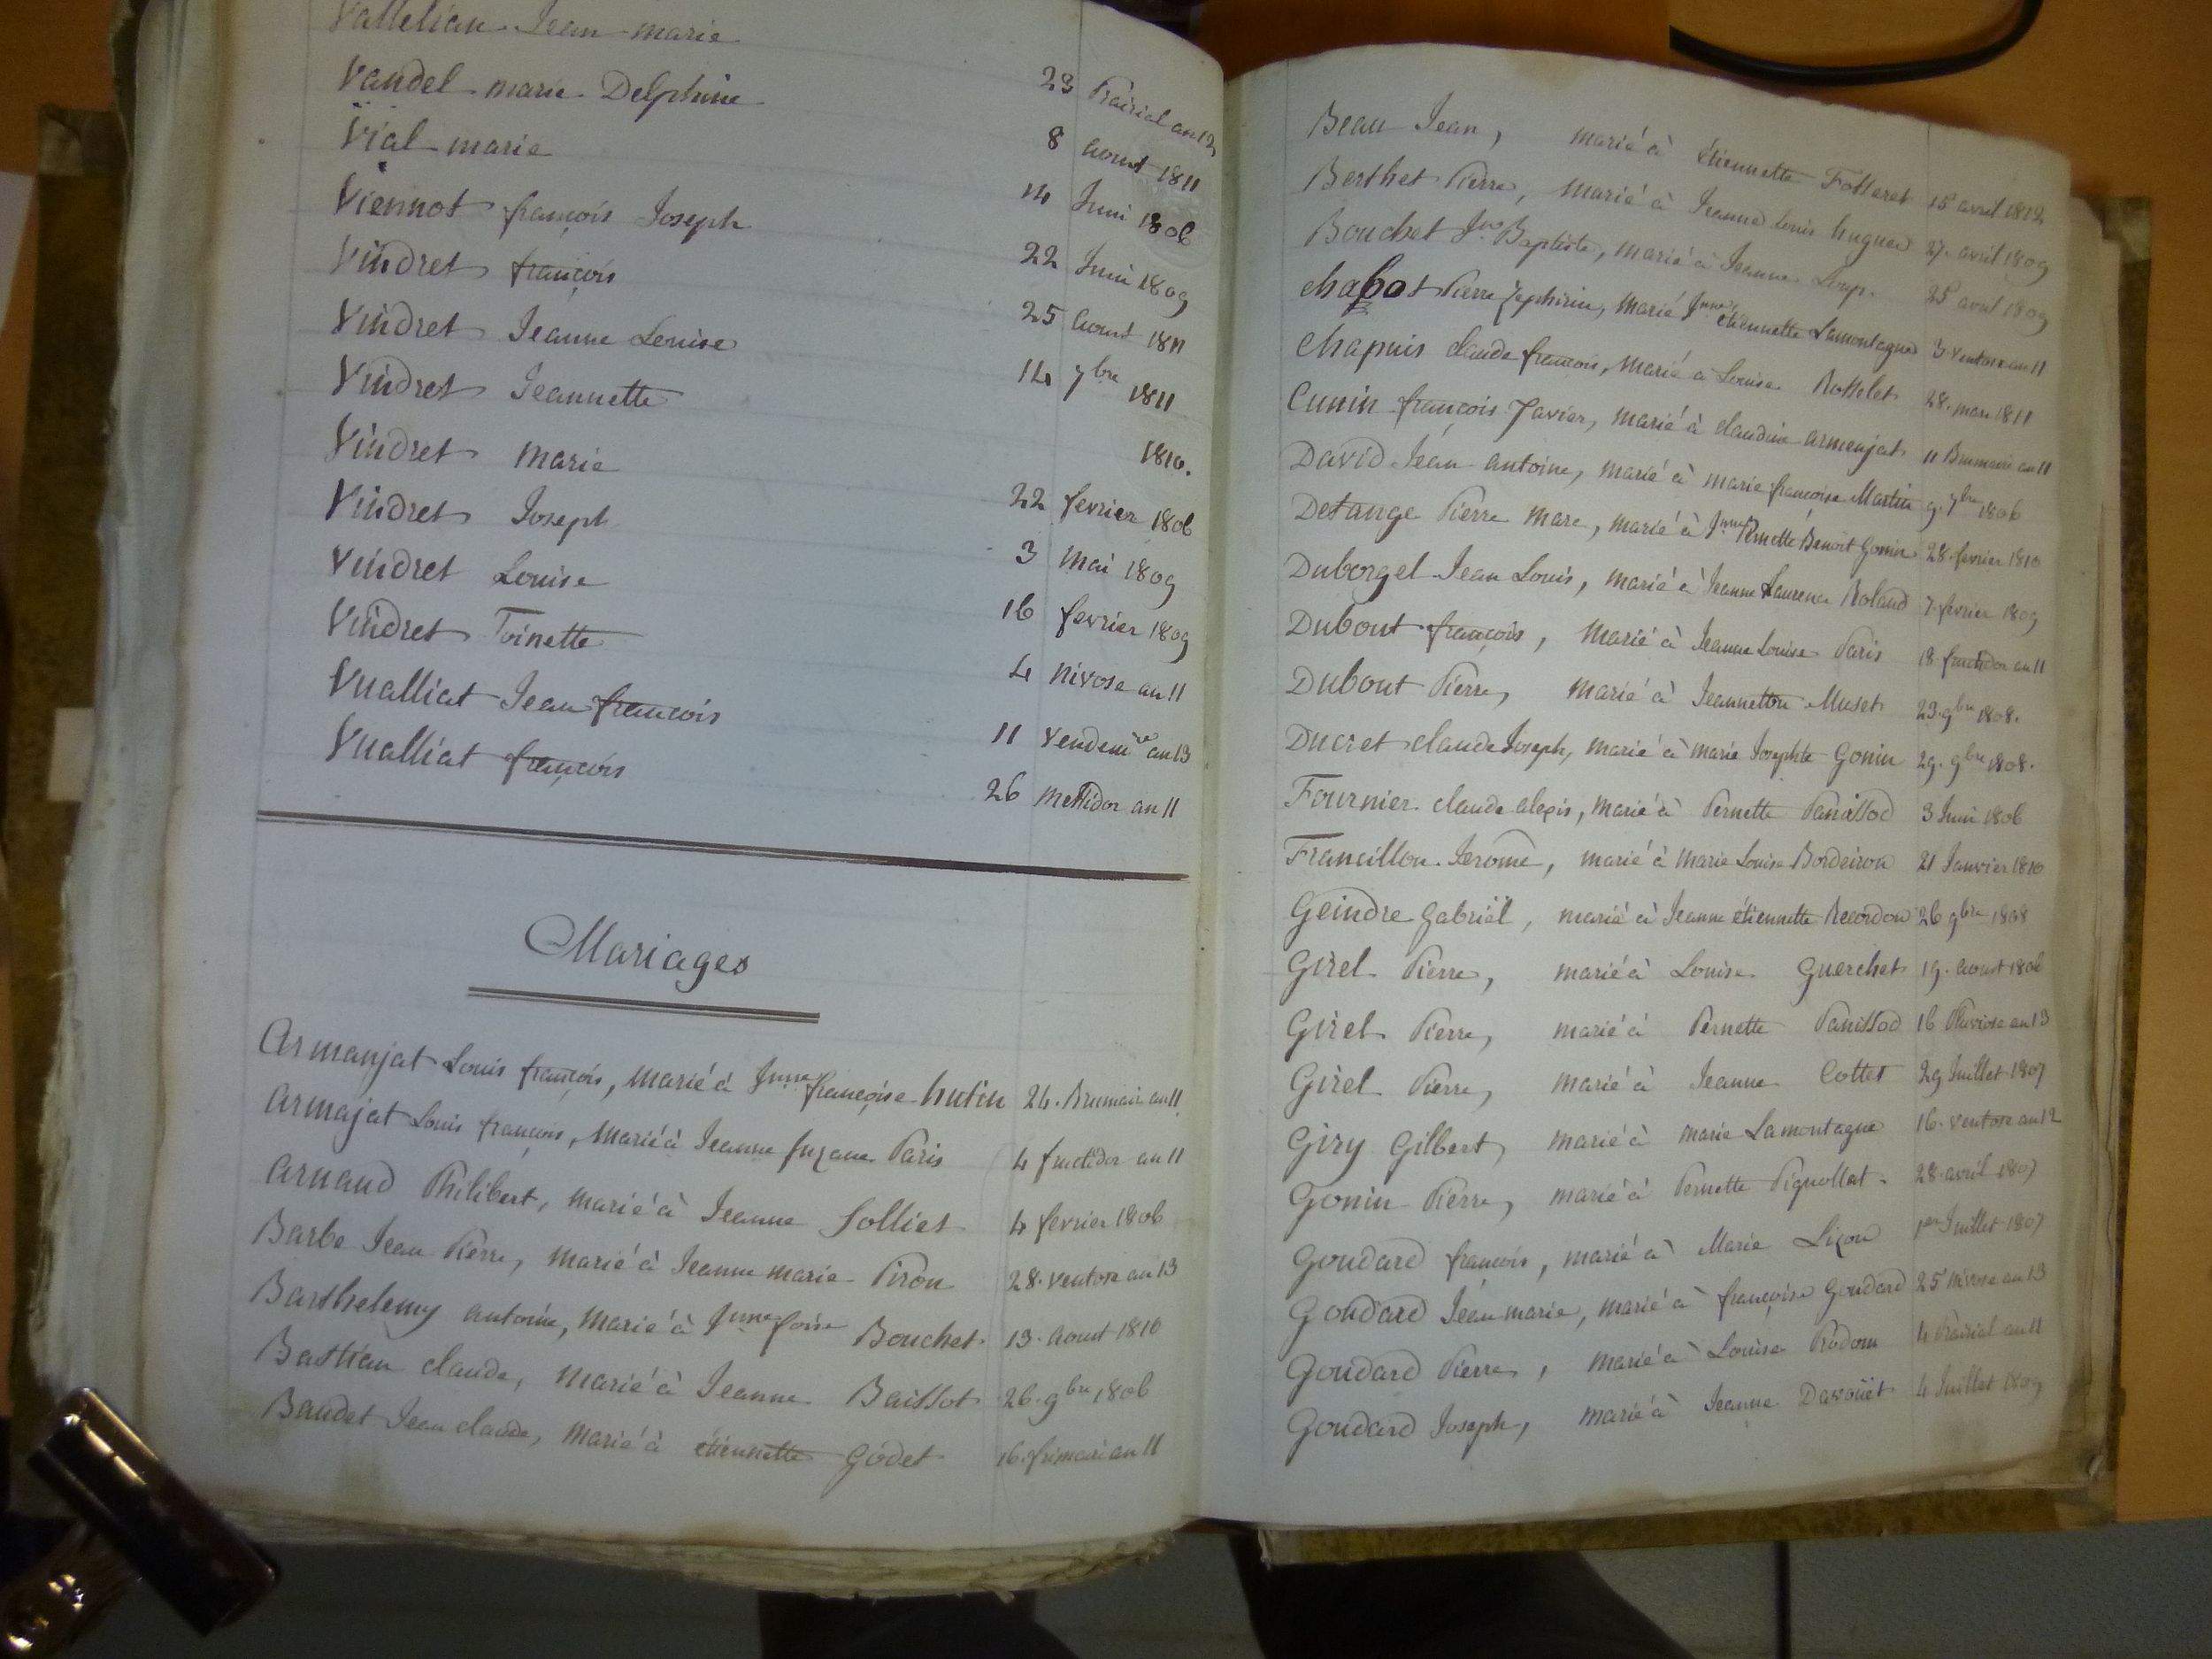 Vallelian Jean marie
Vandel marie Delphine 23 Prairial an 12
Vial marie 8 aoust 1811
Viennot françois Joseph 14 Juin 1806
Vindret françois 22 Juin 1809
Vindret Jeanne Louise 25 aoust 1811
Vindret Jeannette 14 7bre 1811
Vindret marie 1810.
Vindret Joseph 22 fevrier 1806
Vindret Louise 3 mai 1809
Vindret Toinette 16 fevrier 1809
Vualliat Jean françois 4 nivose an 11
Vualliat françois 11 vendemre an 13
26 messidor an 11
Mariages
Armanjat Louis françois, marié à Jnne françoise hutin 24. Brumaire an 11
armajat Louis françois, marié à Jeanne suzane Paris 4 fructidor an 11
arnaud Philibert, marié à Jeanne Solliet 4 fevrier 1806
Barbe Jean Pierre, marié à Jeanne marie Piron 28. ventose an 13
Barthelemy antoine, marié à Jnne foise Bouchet 13. aoust 1810
Bastian claude, marié à Jeanne Baissot 26. 9bre 1806
Baudet Jean claude, marié à étiennette Godet 16. frimaire an 11
Beau Jean, marié à étiennette Folleret 15 avril 1812
Berthet Pierre, marié à Jeanne Louis hugues 27. avril 1809
Bouchet Jn Baptiste, marié à Jeanne Loup. 25 avril 1809
chabot Pierre Zephirin, marié Jnne étiennette Lamontagne 3 ventose an 11
chapuis claude françois, marié à Louise Rosselet 28. mars 1811
Cunin françois Xavier, marié à claudine armenjat 11 Brumaire an 11
David Jean antoine, marié à marie françoise Martin 9. 7bre 1806
Detange Pierre marc, marié à Jnne Pernette Benoit Gonin 28. fevrier 1810
Duborgel Jean Louis, marié à Jeanne Laurence Roland 7. fevrier 1809
Dubout françois, marié à Jeanne Louise Paris 18 fructidor an 11
Dubout Pierre, marié à Jeannette Muset 23. 9bre 1808.
Ducret claude Joseph, marié à marie Josephte Gonin 29. 9bre 1808.
Fournier claude alexis, marié à Pernette Panissod 3 Juin 1806
Francillon Jerome, marié à marie Louise Bordeiron 21 Janvier 1810
Geindre Gabriël, marié à Jeanne étiennette Recordon 26 9bre 1808
Girel Pierre, marié à Louise Guerchet 19. aoust 1806
Girel Pierre, marié à Pernette Panissod 16 Pluviose an 13
Girel Pierre, marié à Jeanne Cottet 29 Juillet 1807
Giry Gilbert, marié à marie Lamontagne 16. ventose an 12
Gonin Pierre, marié à Pernette Pignollat. 28. avril 1807
Goudard françois, marié à Marie Lizon 1er Juillet 1807
Goudard Jean marie, marié à françoise Goudard 25 nivose an 13
Goudard Pierre, marié à Louise Prudom 4 Prairial an 11
Goudard Joseph, marié à Jeanne Davoüet 4 Juillet 1809